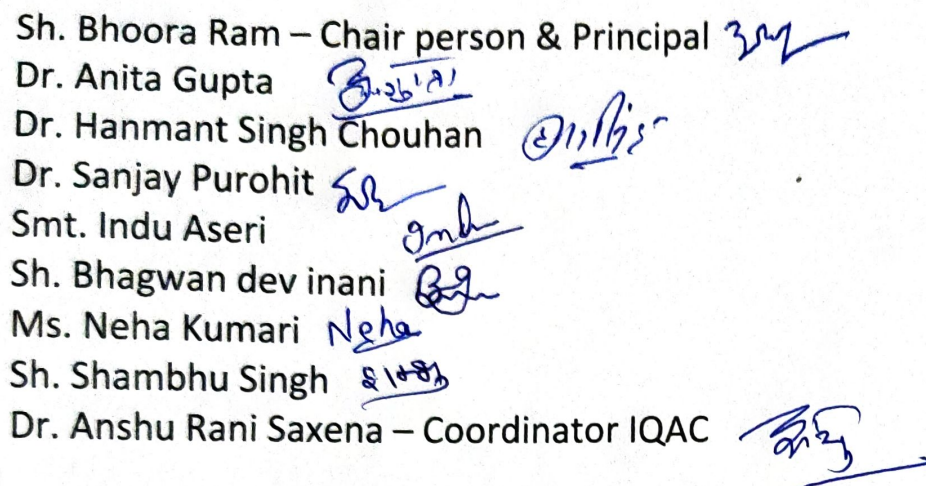 Sh. Bhoora Ram – Chair person & Principal
Dr. Anita Gupta
Dr. Hanmant Singh Chouhan
Dr. Sanjay Purohit
Smt. Indu Aseri Indu
Sh. Bhagwan dev inani
Ms. Neha Kumari Neha
Sh. Shambhu Singh
Dr. Anshu Rani Saxena – Coordinator IQAC